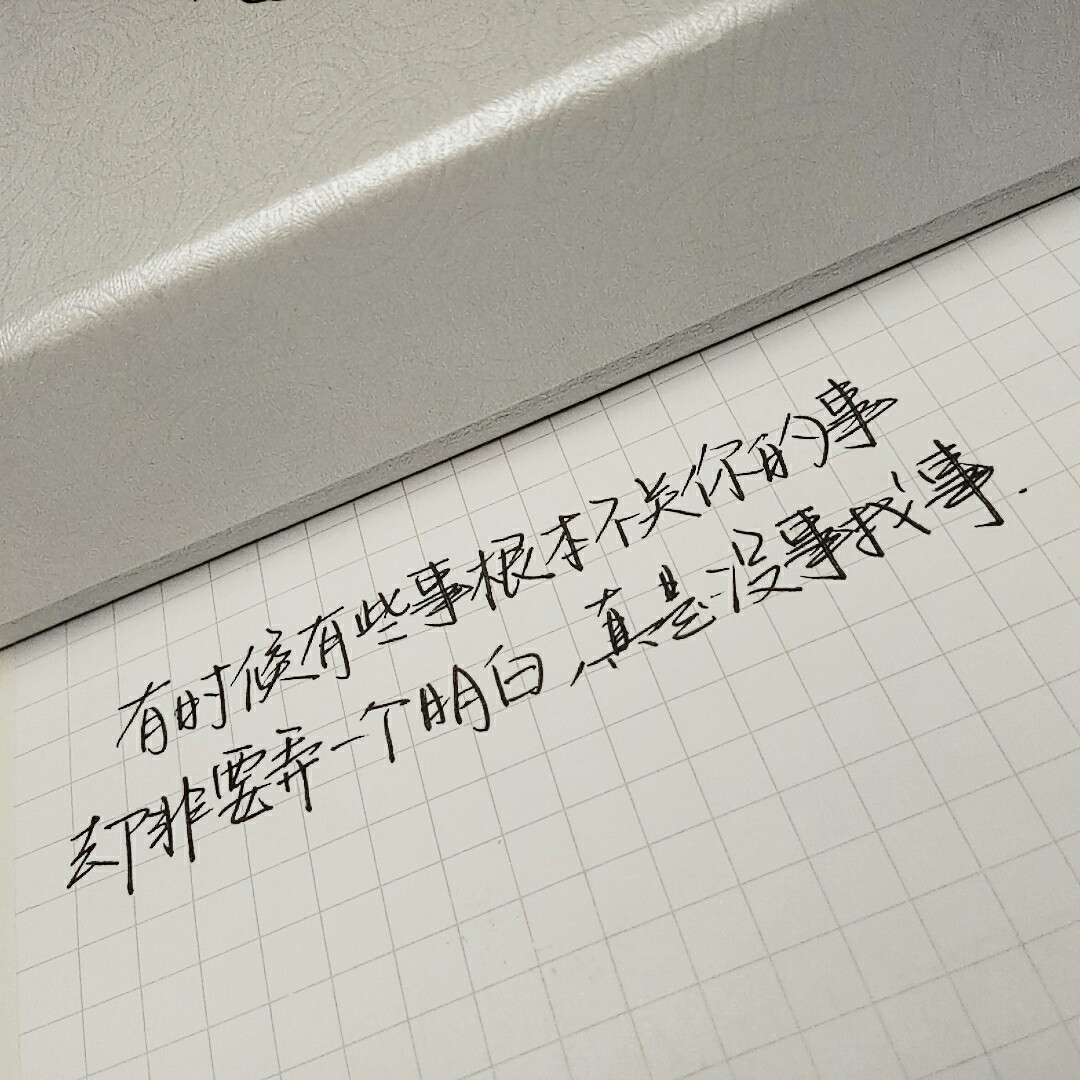 有时候有些事根本不关你的事
却非要弄一个明白，真是没事找事.